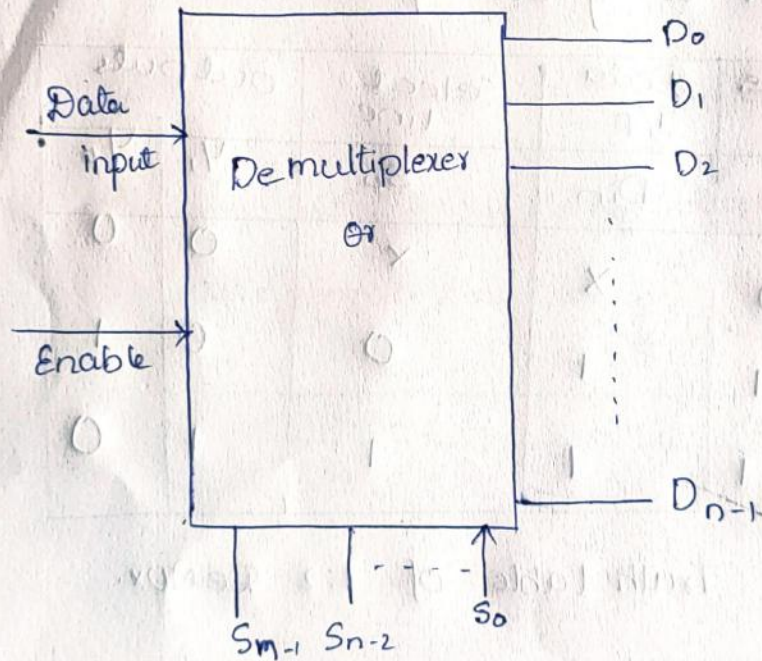 Data
input
Enable
Demultiplexer
Or
D0
D1
D2
Dn-1
Sm-1 Sn-2 - - - - S0